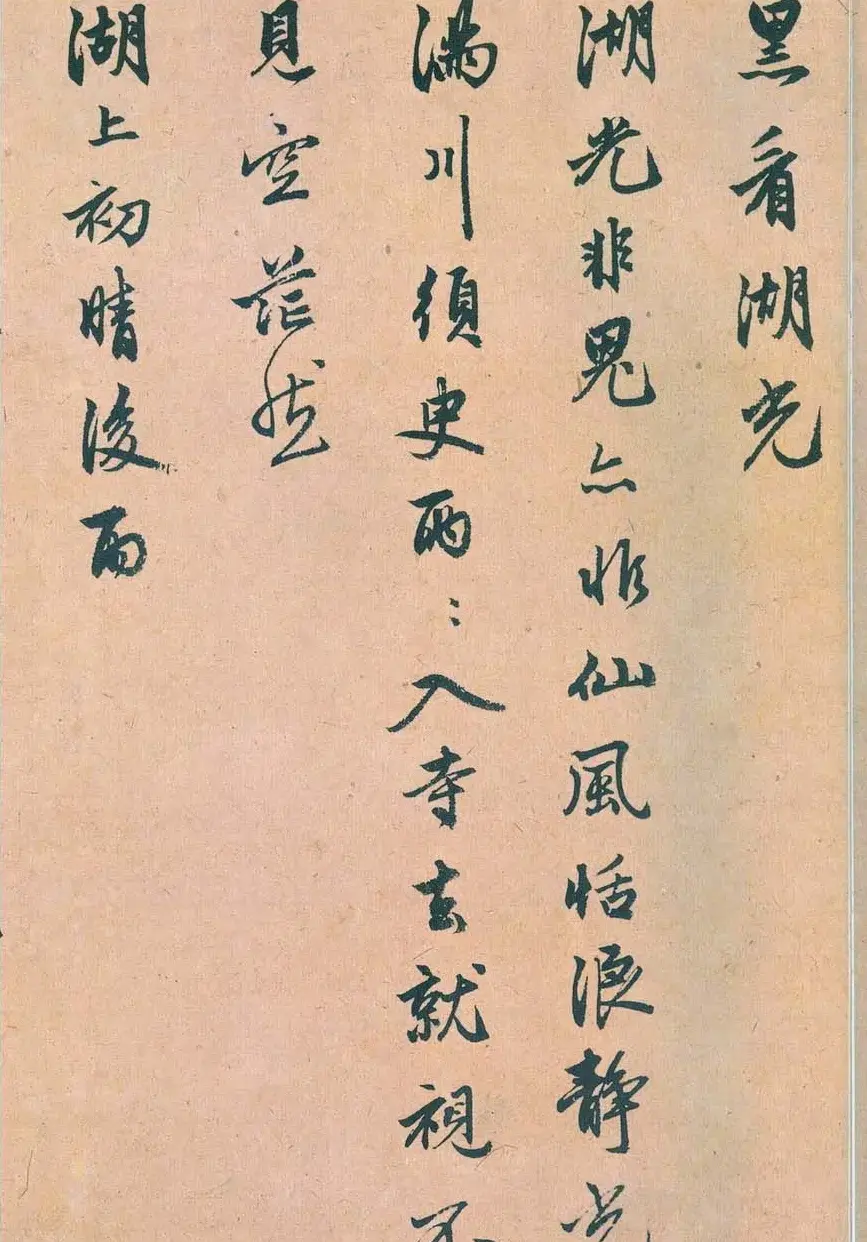 黑看湖光
湖光非鬼亦非仙風恬浪靜光
滿川須臾兩々入寺去就視不
見空茫然
湖上初晴後雨